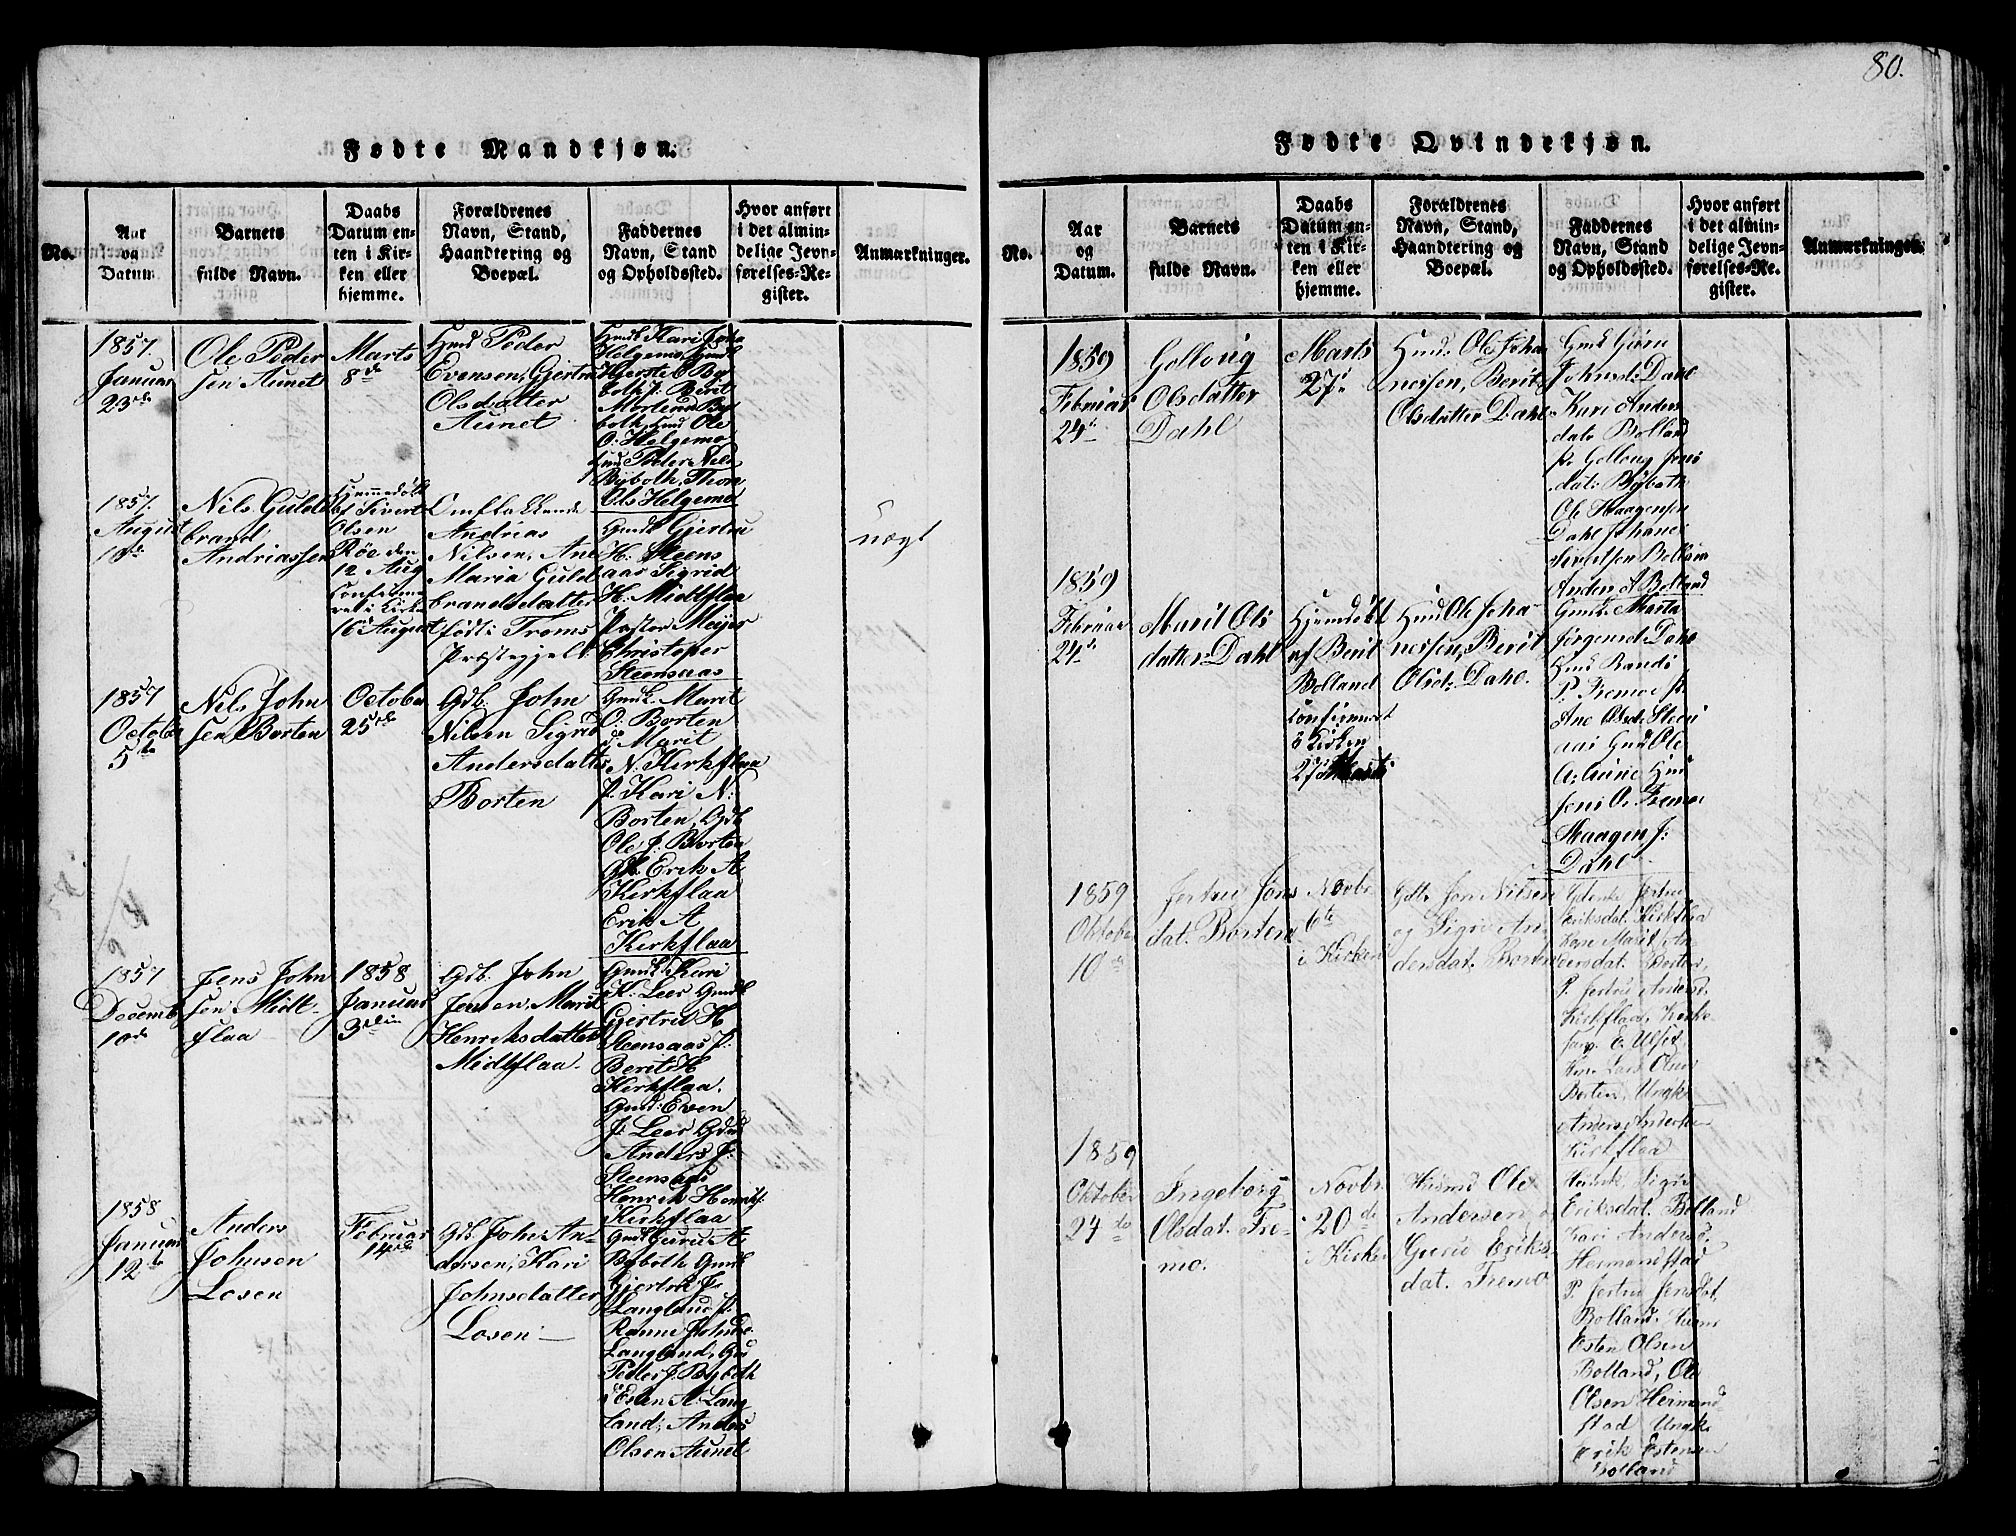 80.
Fødte Mandkjøn.
No.
Aar
og
Datum.
Barnets
fulde Navn.
Daabs
Datum en-
ten i Kir-
ken eller
hjemme.
Forældrenes
Navn, Stand,
Haandtering og
Boepæl.
Faddernes
Navn, Stand
og Opholdssted.
Hvor anført
i det almin-
delige Jevn-
førelses-Re-
gister.
Anmærkninger.
1857.
Januar
23de
Ole Peder
sen Aunet
Marts
8de
Hmd Peder
Evensen, Gjertru
Olsdatter
Aunet
Gmdk Kari Joha
Helgemo, Gmdk
Kiersti By
both p. Berit
Mortensd By
both Hmd Ole
O: Helgemo
Hmd Peder Nils
Byboth, Thom
Ols Helgemo
1857.
August
10de
Nils Guld
brand
Andriassen
Hjemmedøbt
af Sivert
Olsen
Røe den
12 Aug
Confirme
ret i Kirke
16 August
Omflakkende
Andrias
Nilsen, Ane
Maria Guld
brandsdatter
født i Troms
Præstegjel
Gmdk Gjertru
H: Steens
aas Sigrid
H: Midtflaa
Pastor Meyer
Christopher
Steensaas
uægt
1857
October
5te
Nils John
sen Borten
October
25de
Gdb. John
Nilsen Sigrid
Andersdatter
Borten
Gmdk. Marit
O: Borten
do Marit
N. Kirkflaa
p: Kari N:
Borten, Gdb
Ole J. Borten
Gdb. Erik A
Kirkflaa
Erik A
Kirkflaa
1857
Decemb
10de
Jens John
sen Midt-
flaa
1858
Januar
3die
Gdb. John
Jensen, Marit
Henriksdatter
Midtflaa.
Gmdk Kari
K. Leer Gmdk
Gjertrud H
Steensaas p:
Berit H
Kirkflaa.
Gmd: Even
J: Leer Gdmd
Anders J:
Steensaas
Henrik Henriks:
Kirkflaa
1858
Januar
12te
Anders
Johnsen
Losen
Februar
14de
Gdb. John An-
dersen, Kari
Johnsdatter
Losen
Gmdk Guru A
Byboth Gmdk
Gjertrud J.
Langland p.
Ranne Johnsd
Langland, Gm
Peder J. Byboth
do Esten A. Lang
land, Anders
Olsen Aunet
Fødte Qvindekjøn.
No.
Aar
og
Datum.
Barnets
fulde Navn.
Daabs
Datum en-
ten i Kir-
ken eller
hjemme.
Forældrenes
Navn, Stand,
Haandtering og
Boepæl.
Faddernes
Navn, Stand
og Opholdssted.
Hvor anført
i det almin-
delige Jevn-
førelses-Re-
gister.
Anmærkninger.
1859
Februar
24de
Gollovig
Olsdatter
Dahl
Marts
27de
Hmd. Ole Joha
nessen, Berit
Olsdatter Dahl
Gmdk Gjøru
Johnsd: Dahl
Kari Anders
datr Bolland
p. Gollovig Jens
dat: Byboth
Ole Haagensen
Dahl Johanes
Sivertsen Bolland
Anders A Bolland
1859
Februar
24de
Marit Ols
datter Dahl
Hjemdøbt
af Berit
Bolland
Confirmeret
i Kirken
27de Marts
Hmd Ole Joha
nessen, Berit
Olsd: Dahl.
Gmdk. Marta
Jørgensd Dahl
Hmd Randi
P. Fremo p.
Ane Olsd: Steens
aas Gmd Ole
A: Hmd
Jens O. Fremo
Haagen J:
Dahl
1859
Oktober
10de
Jertru Jons
dat. Borten
Novbr
6te
i Kirken
Gdb. Jon Nilsen
og Sigri An
dersdat. Borten
Gdenke Jertru
Eriksdat. Kirkflaa
Kone Marit An
dersdat. Borten,
P. Jertru Andersd
Kirkflaa, Kirke
sang. E. Ulset,
Lars Olsen
Borten, Ungk.
Anders Andersen
Kirkflaa
1859
Oktober
24de
Ingeborg
Olsdat. Fre-
mo.
Novbr.
20de
i Kirken
Husmd Ole
Andersen og
Guru Eriks
dat. Fremo
Sigri
Eriksdat. Bolland
Kari Andersd.
Hermandstad
P. Jertru Jensdat,
Bolland.
Esten Olsen
Bolland, Ole
Olsen Hermand
stad Ungk.
Erik Estensen
Bolland